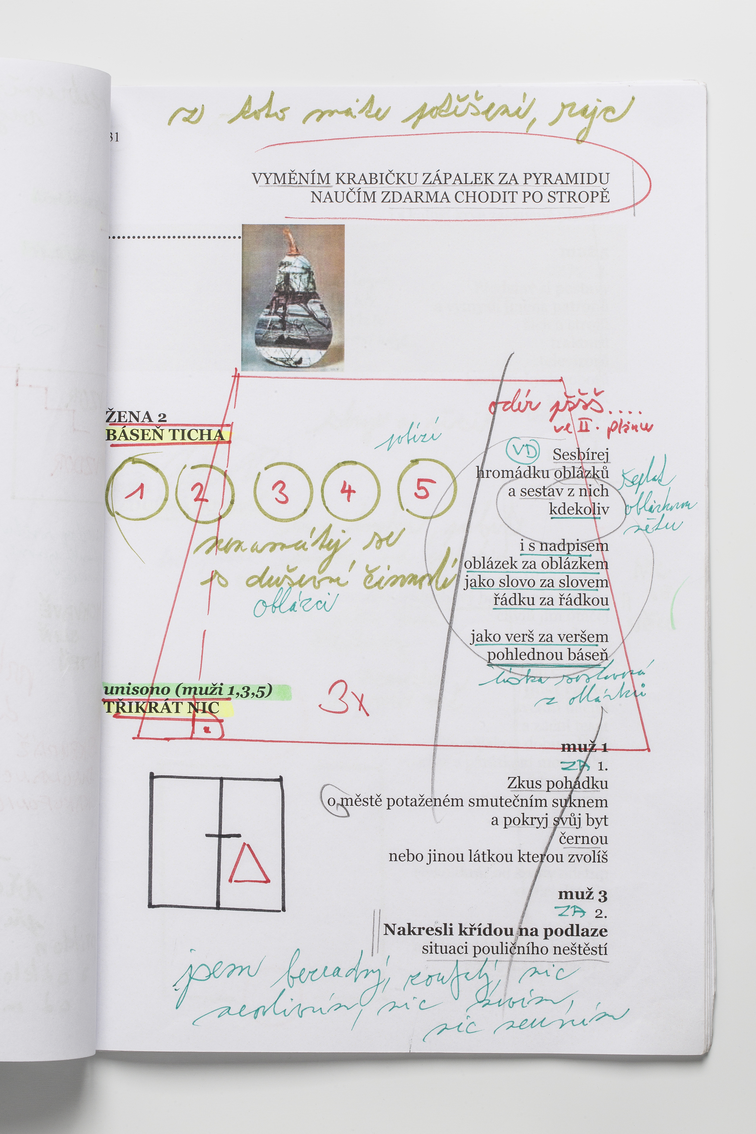 z toho máte potěšení, rajc
31
VYMĚNÍM KRABIČKU ZÁPALEK ZA PYRAMIDU
NAUČÍM ZDARMA CHODIT PO STROPĚ
odér pššš....
ve II. plánu
ŽENA 2
BÁSEŇ TICHA
VD
Sesbírej
hromádku oblázků
a sestav z nich
kdekoliv
1 2 3 4 5
i s nadpisem
oblázek za oblázkem
jako slovo za slovem
řádku za řádkou
nenamáhty se
s duševní činností
oblázci
jako verš za veršem
pohlednou báseň
z oblázků
unisono (muži 1,3,5)
TŘIKRÁT NIC
3x
muž 1
ZA 1.
Zkus pohádku
o městě potaženém smutečním suknem
a pokryj svůj byt
černou
nebo jinou látkou kterou zvolíš
muž 3
ZA 2.
Nakresli křídou na podlaze
situaci pouličního neštěstí
jsem bezradný, zoufalý, nic
neovlivním, nic nevím,
nic neumím